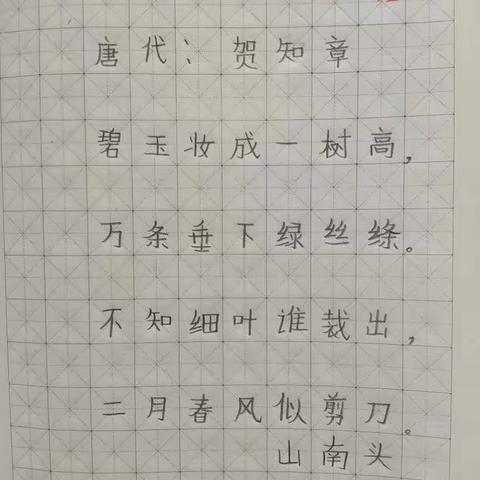 唐代：贺知章
碧玉妆成一树高，
万条垂下绿丝绦。
不知细叶谁裁出，
二月春风似剪刀。
山南头